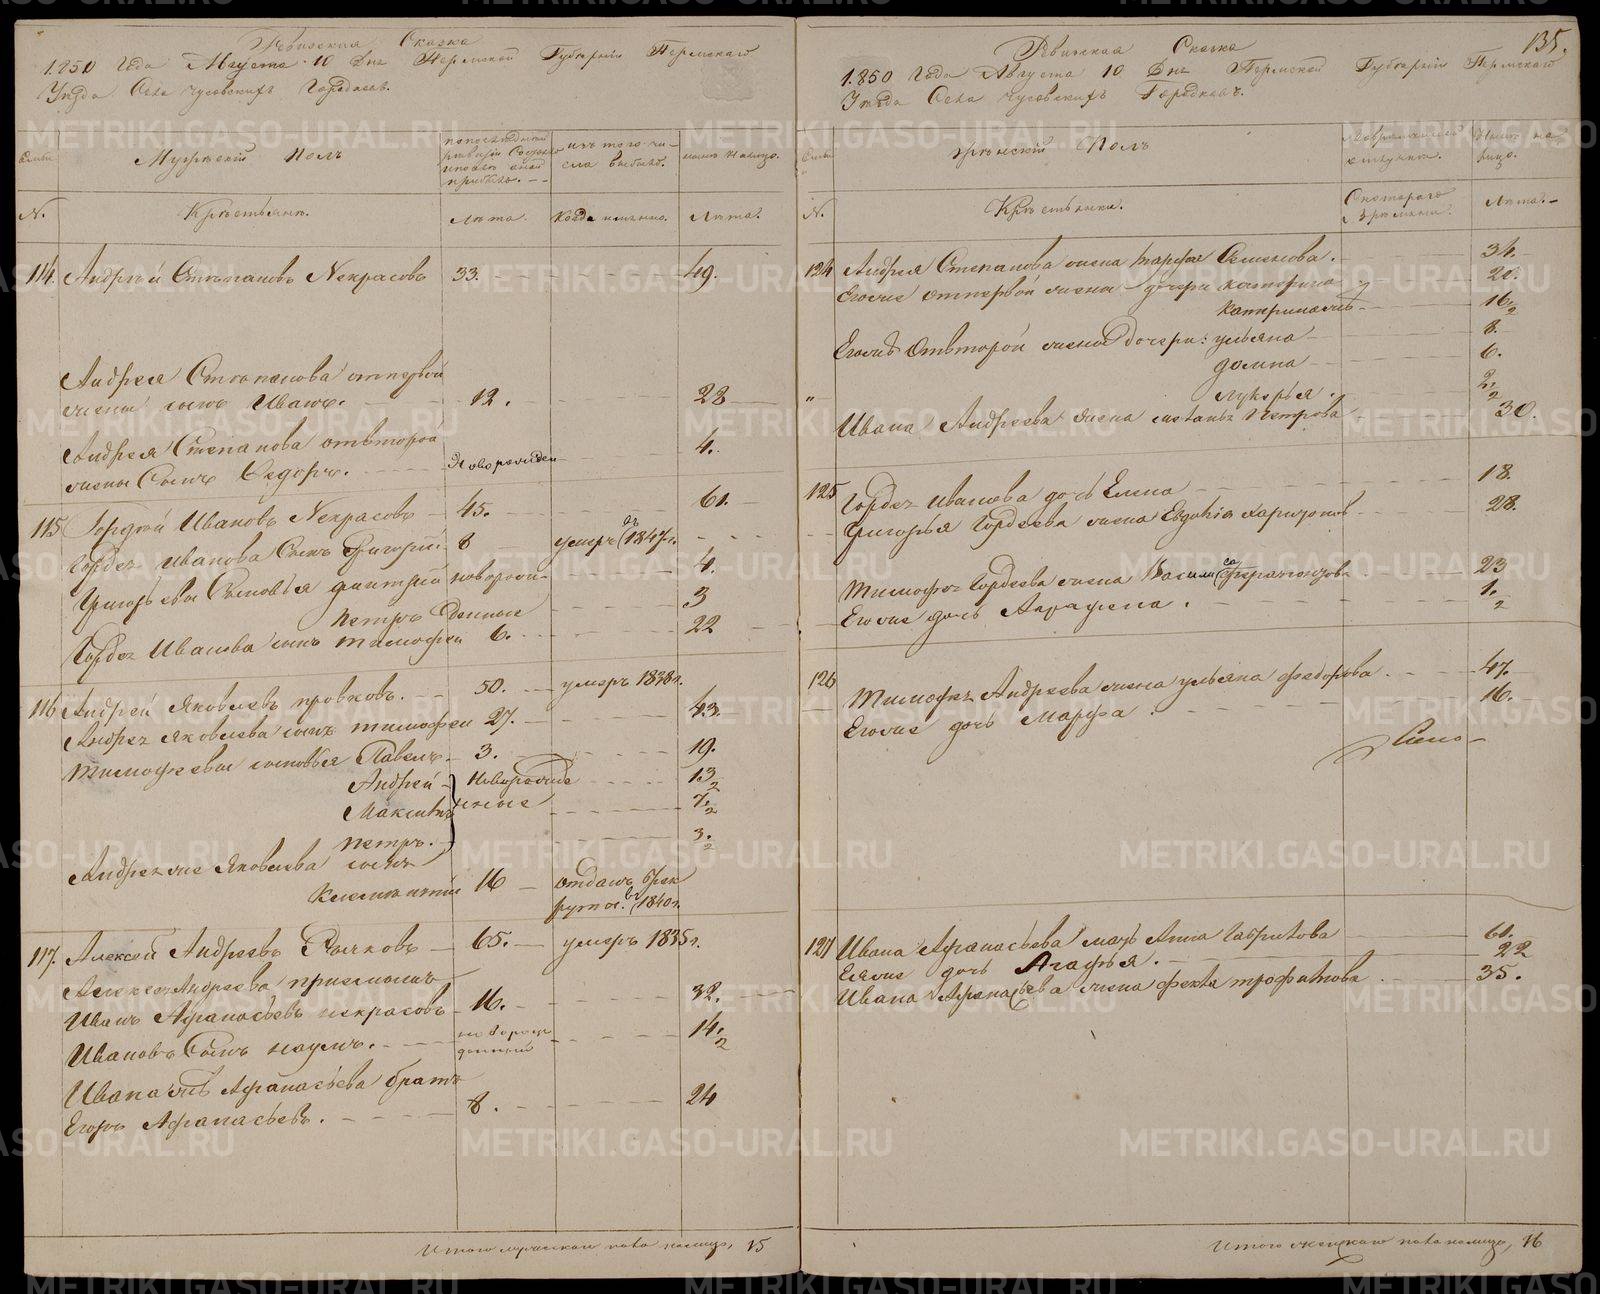 Ревизская Сказка
1850 Года Августа 10 Дня Пермской Губернии Пермскаго
Уезда Села Чусовскихъ Городковъ.
Семьи
Мужескій Полъ
по последней ревизіи Состояло и после оной прибыло.
изъ того числа выбыло.
ныне на лицо.
N.
Крестьяне.
лета.
Когда именно.
Лета.
114. Андрей Степановъ Некрасовъ 33. 49.
Андрея Степанова отпервой
жены сынъ Иванъ. 12. 28
Андрея Степанова отвторой
жены Сынъ Федоръ. Новорожден 4.
115 Гордей Ивановъ Некрасовъ 45. 61.
Гордея Иванова Сынъ Григорій 8 умеръ въ 1847 г.
Григорьевы Сыновья Дмитрій новорож- 4.
Петръ денные 3
Гордея Иванова сынъ Тимофей 6. 22
116 Андрей Яковлевъ Провковъ. 50. умеръ 1838 г.
Андрея Яковлева сынъ Тимофей 27. 43.
Тимофеевы сыновья Павелъ 3. 19.
Андрей Новорожде 13/2
Максимъ нные 7/2
Петръ. 3/2
Андрея же Яковлева сынъ
Климентій 16 отданъ в рек
руты въ 1840 г.
117. Алексей Андреевъ 65. умеръ 1835 г.
Алексея Андреева приемышъ
Иванъ Афанасьевъ Некрасовъ 16. 32.
Ивановъ Сынъ Наумъ. новорож
денный 14/2
Ивана же Афанасьева братъ
Егоръ Афанасьевъ. 8. 24
Итого мужескаго пола налицо, 15
135.
Ревизская Сказка
1850 Года Августа 10 Дня Пермской Губерніи Пермскаго
Уезда Села Чусовскихъ Городковъ.
Семьи
Женскій Полъ
Ныне на лицо.
N.
Крестьянки.
Скотораго Времени.
Лета.
124 Андрея Степанова жена Марфа Семенова. 34.
Егоже отпервой жены дочери Катерина 20.
Катерина же 16/2
Егожъ Отвторой жены дочери: Ульяна 8.
Домна 6.
Лукерья. 2/2
Ивана Андреева жена Петрова 30.
125 Гордея Иванова дочь Елена 18.
Григорья Гордеева жена Евдокія Харитонов 28.
Тимофея Гордеева жена Васили са Ферапонтова 23
Егоже дочь Аграфена. 1/2
126 Тимофея Андреева жена Ульяна Федорова. 47.
Егоже дочь Марфа. 16.
127 Ивана Афанасьева мать Анна Гаврилова 61.
Егоже дочь Агафья. 22
Ивана Афанасьева жена Фекла Трофимова 35.
Итого женскаго пола налицо, 16
METRIKI.GASO-URAL.RU